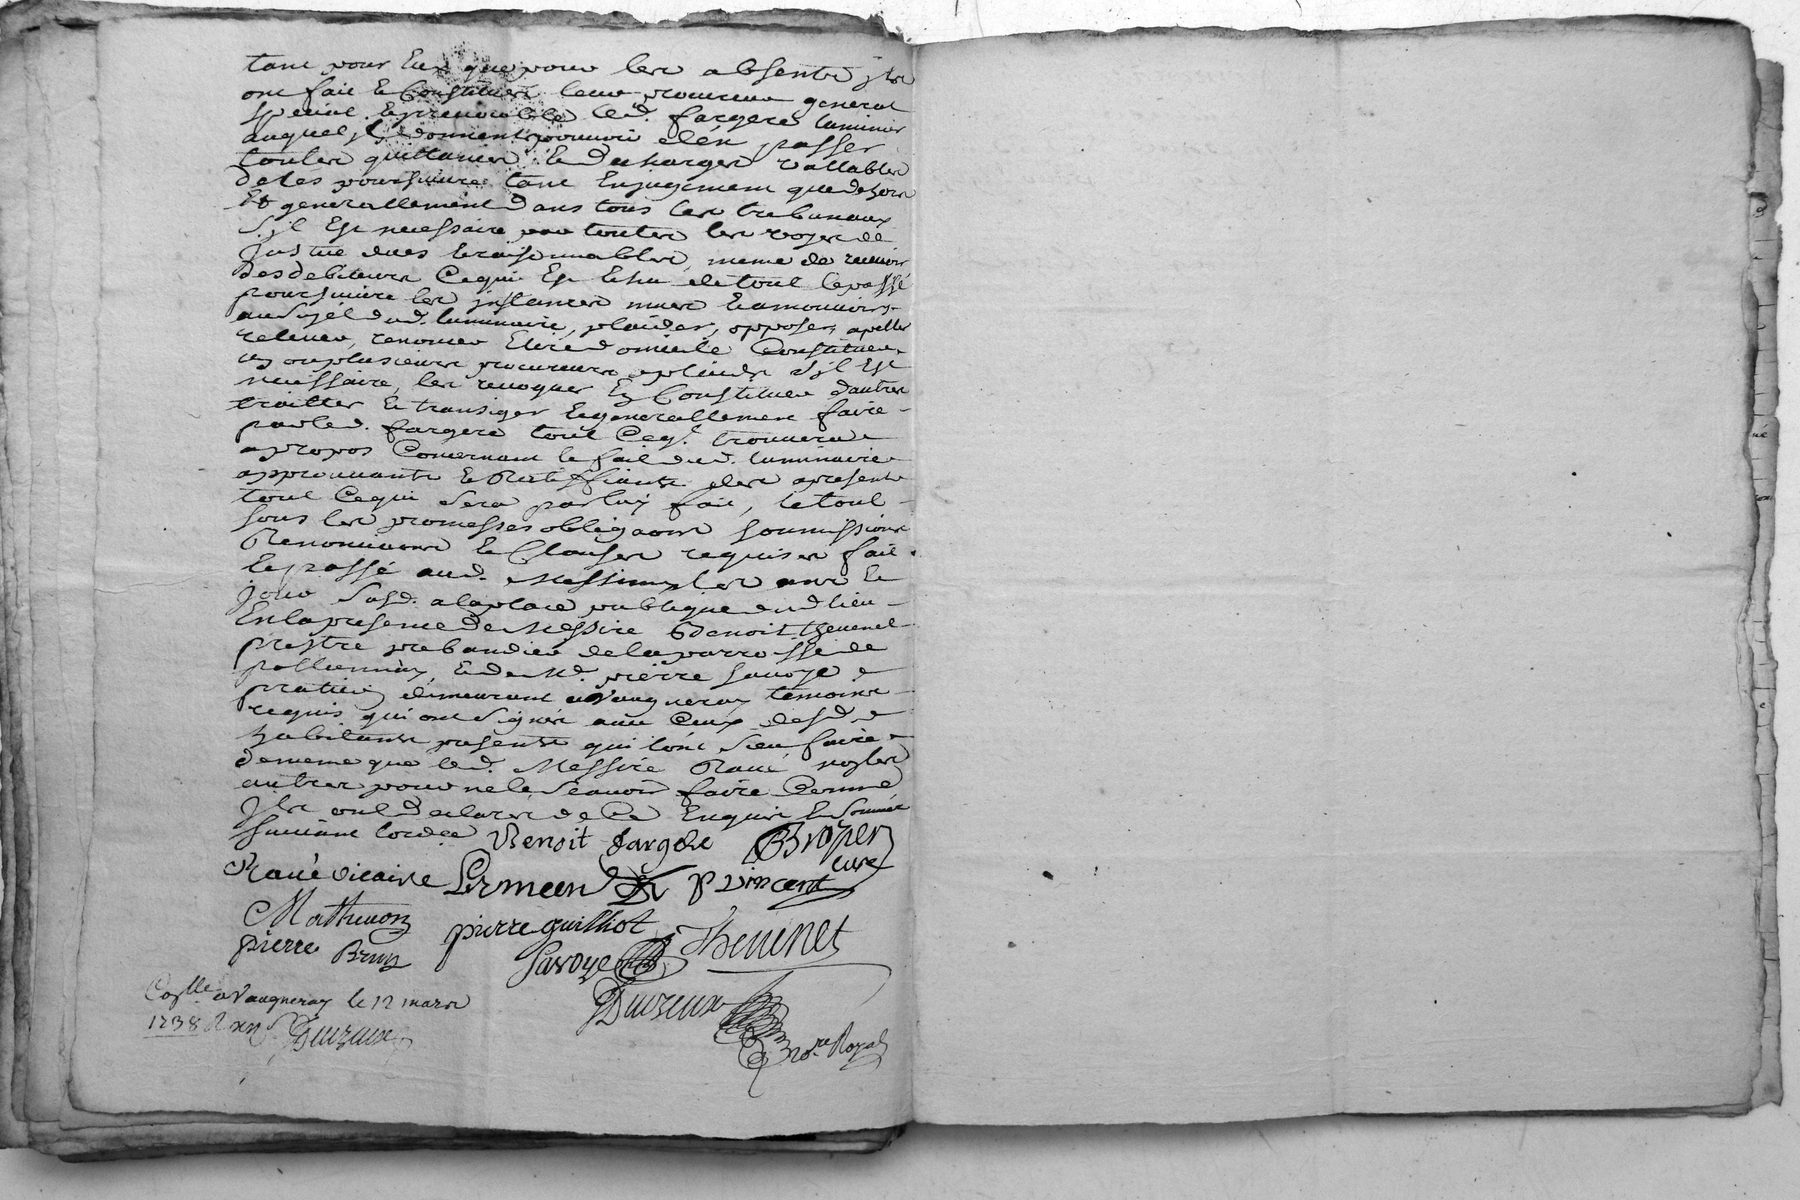 tant pour Eux que pour les absents, jls
ont fait & Constitué leur procureur general
special & jrrevocable led. fargere luminier
auquel jls donnent pouvoir den passer
toutes quittances & decharges vallables
de les poursuivre tant En jugement que dehors
Et generallement dans tous les tribunaux
S'jl Est necessaire par toutes les voyes de
Justice dues & raisonnables, meme de recevoir
des debiteurs Cequi Est Echu de tout le passé
poursuivre les jnstances mues & a mouvoir
au Sujet dud. luminaire, plaider, opposer, apeller
relever, renoncer Elire domicile Constituer
un ou plusieurs procureurs aplaids S'jl Est
necessaire, les revoquer En Constituer dautres
traitter & transiger & generallement faire
par led. fargere tout Ceq'. trouvera
apropos Concernant le fait dud. luminaire
approuvants & Ratiffiants des apresent
tout Cequi Sera par luy fait, le tout
sous les promesses obligaons soumissions
Renonciaons & Clauses requises fait
& passé aud. Messimy les an &
jour Susd. a la place publique dud lieu
En la presence de Messire Benoit thevenet
prestre prebandier de la parroisse de
pollionnay, & de Md. pierre Savoye
praticien demeurant a Vaugneray temoins
requis qui ont Signés avec Ceux desd
habitants presents qui l'ont Sceu faire
de meme que led. Messire Ravé non les
autres pour ne le Scavoir faire Comme
Jls ont declaré de Ce Enquis & Sommés
suivant lord.ce Benoit fargere Broyer
curé
Ravé vicaire P Vincent
Mathevon pierre guilliot Thevenet
pierre Brun Savoye
Conlle a Vaugneray le 12 mars Duvreux
1738 Duvreux
Nore Royal